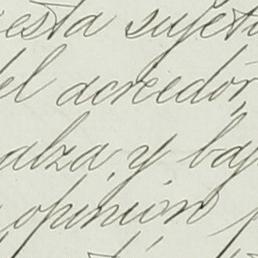 esta sujeta
el acreedór,
alza, y baj
opinión p